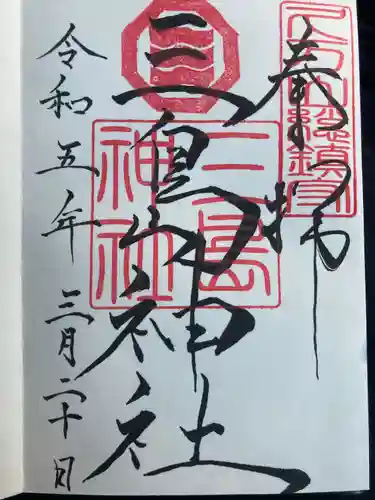 奉拝
三島神社
三島
神社
令和五年三月二十日